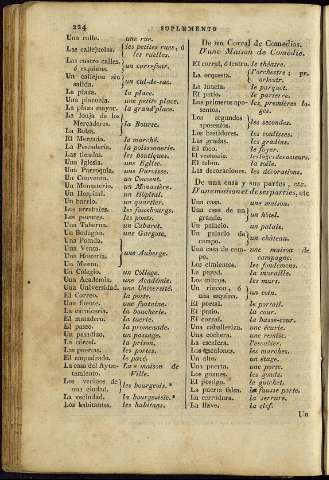 224 SUPLEMENTO
Una calle. une rue.
Las callejuelas. les petites rues, ó les ruelles.
Las cuatro calles, ó esquinas. un carrefour.
Un callejon sin salida. un cul-de-sac.
La plaza. la place.
Una plazuela. une petite place.
La plaza mayor. la grand'place.
La lonja de los Mercaderes. La Bolsa. la Bourse.
El Mercado. le marché.
La Pescaderia. la poissonnerie.
Las tiendas. les boutiques.
Una Iglesia. une Eglise.
Una Parroquia. une Paroisse.
Un Convento. un Couvent.
Un Monasterio. un Monastère.
Un Hospital. un Hôpital.
Un barrio. un quartier.
Los arrabales. les fauxbourgs.
Los puentes. les ponts.
Una Taberna. un Cabaret.
Un Bodegon. une Gargote.
Una Posada. Una Venta. Una Hosteria. Un Meson. une Auberge.
Un Colegio. un Collège.
Una Academia. une Académie.
Una Universidad. une Université.
El Correo. la poste.
Una fuente. une fontaine.
La carniceria. la boucherie.
El matadero. la tuerie.
El paseo. la promenade.
Un pasadizo. un passage.
La cárcel. la prison.
Las puertas. les portes.
El empedrado. le pavé.
La casa del Ayuntamiento. La maison de Ville.
Los vecinos de una ciudad. les bourgeois.*
La vecindad. la bourgeoisie.*
Los habitantes. les habitans.
De un Corral de Comedias.
D'une Maison de Comédie.
El corral, ó teatro. le théatre.
La orquesta. l'orchestre; pr. orkestr.
La luneta. le parquet.
El patio. le parterre.
Los primeros aposentos. les premieres loges.
Los segundos aposentos. les secondes.
Los bastidores. les coulisses.
Las gradas. les gradins.
El foco. le foyer.
El vestuario. les loges des acteurs.
El telon. la toile.
Las decoraciones. les décorations.
De una casa y sus partes, etc.
D'une maison et de ses parties, etc.
Una casa. une maison.
Una casa de un grande. un hôtel.
Un palacio. un palais.
Un palacio de campo. un château.
Una casa de campo. une maison de campagne.
Los cimientos. les fondemens.
La pared. la muraille.
Los muros. les murs.
Un rincon, ó una esquina. un coin.
El portal. le portail.
El patio. la cour.
El corral. la basse-cour.
Una caballeriza. une écurie.
Una cochera. une remise.
La escalera. l'escalier.
Los escalones. les marches.
Un alto. un étage.
Una puerta. une porte.
Los goznes. les gonds.
El postigo. le guichet.
La puerta falsa. la fausse porte.
La cerradura. la serrure.
La llave. la clef.
Un